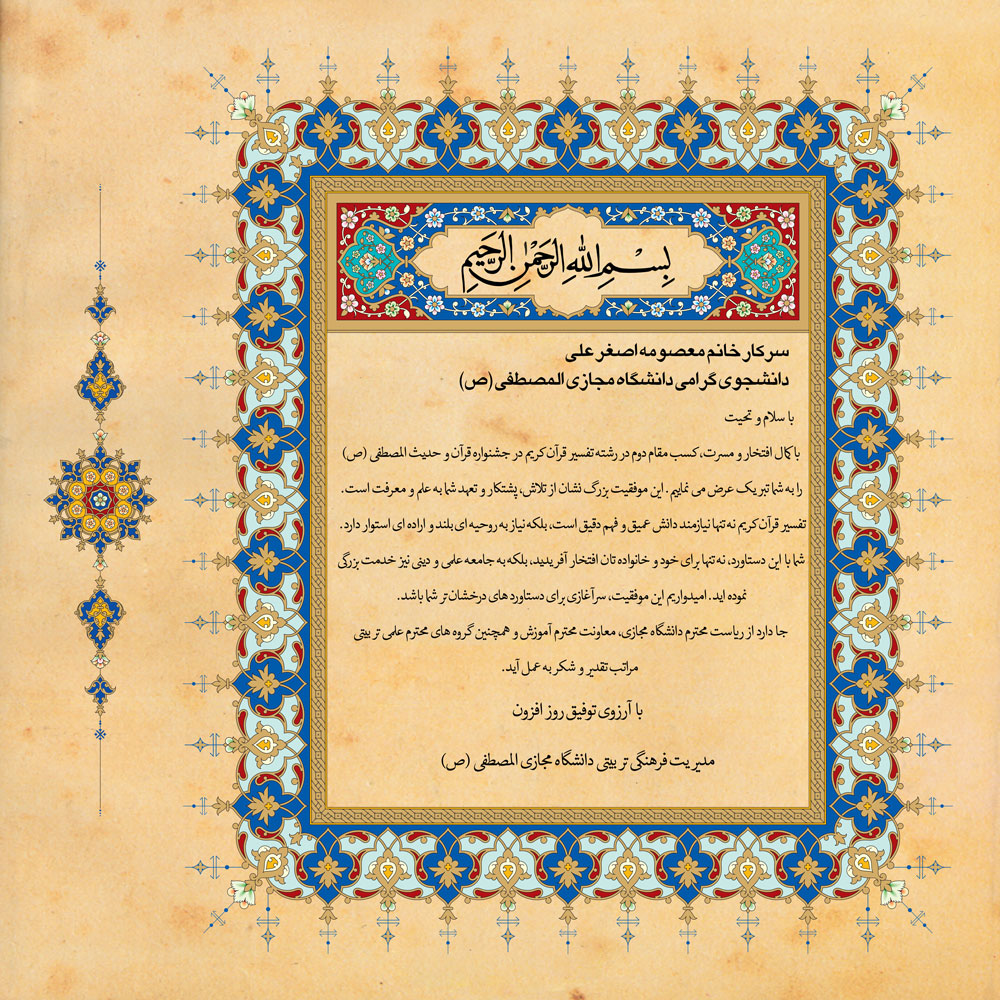 بِسْمِ اللهِ الرَّحْمٰنِ الرَّحیمِ
سرکار خانم معصومه اصغر علی
دانشجوی گرامی دانشگاه مجازی المصطفی (ص)
با سلام و تحیت
با کمال افتخار و مسرت، کسب مقام دوم در رشته تفسیر قرآن کریم در جشنواره قرآن و حدیث المصطفی (ص)
را به شما تبریک عرض می نماییم . این موفقیت بزرگ نشان از تلاش، پشتکار و تعهد شما به علم و معرفت است.
تفسیر قرآن کریم نه تنها نیازمند دانش عمیق و فهم دقیق است، بلکه نیاز به روحیه ای بلند و اراده ای استوار دارد.
شما با این دستاورد، نه تنها برای خود و خانواده تان افتخار آفریدید، بلکه به جامعه علمی و دینی نیز خدمت بزرگی
نموده اید. امیدواریم این موفقیت، سرآغازی برای دستاوردهای درخشان تر شما باشد.
جا دارد از ریاست محترم دانشگاه مجازی، معاونت محترم آموزش و همچنین گروه های محترم علمی تربیتی
مراتب تقدیر و شکر به عمل آید.
با آرزوی توفیق روز افزون
مدیریت فرهنگی تربیتی دانشگاه مجازی المصطفی (ص)